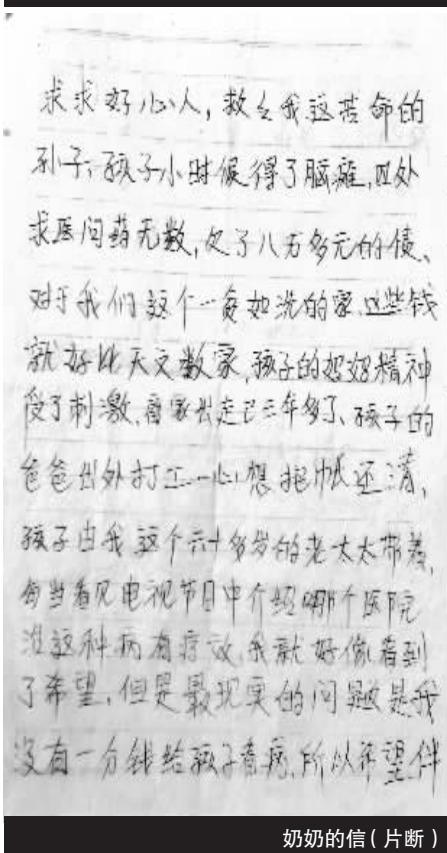 求求好心人，救么我这苦命的
孙子，孩子小时候得了脑瘫，四处
求医问药无数，欠了八万多元的债、
对于我们这个一贫如洗的家，这些钱
就好比天文数家，孩子的妈妈精神
受了刺激，离家出走已三年多了、孩子的
爸爸出外打工一心想把帐还清、
孩子由我这个六十多岁的老太太带着，
每当看见电视节目中介绍哪个医院
准这种病有疗效，我就好像看到
了希望，但是最现实的问题是我
没有一分钱给孩子看病，所以希望伴
奶奶的信（片断）